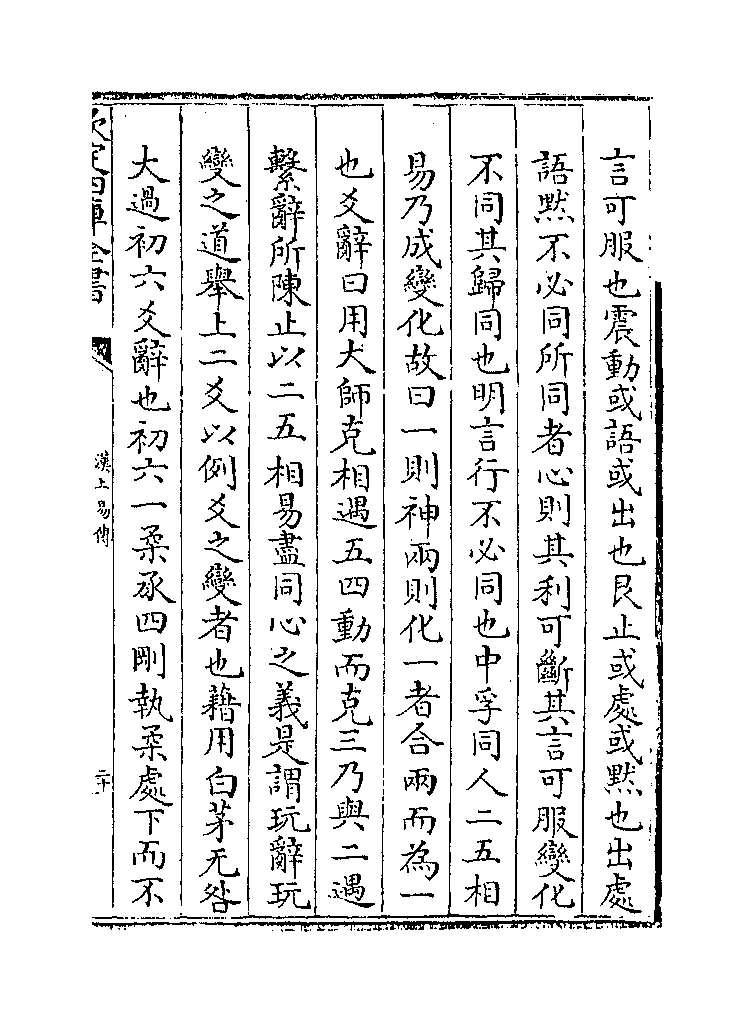 言可服也震動或語或出也艮止或處或黙也出處
語黙不必同所同者心則其利可斷其言可服變化
不同其歸同也明言行不必同也中孚同人二五相
易乃成變化故曰一則神兩則化一者合兩而為一
也爻辭曰用大師克相遇五四動而克三乃與二遇
繫辭所陳止以二五相易盡同心之義是謂玩辭玩
變之道舉上二爻以例爻之變者也藉用白茅无咎
大過初六爻辭也初六一柔承四剛執柔處下而不
欽定四庫全書
漢上易傳
二十